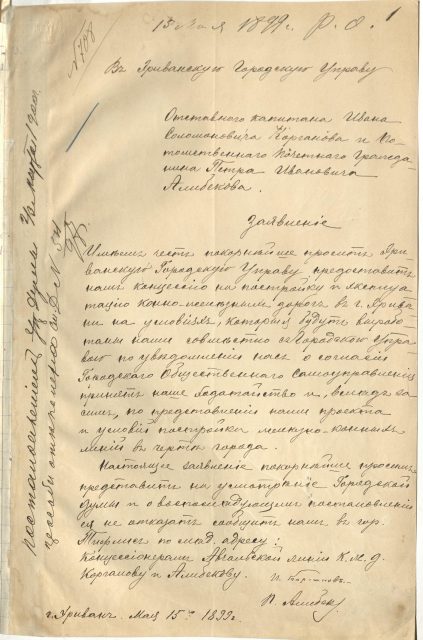 15 Мая 1899 г.
1
№ 708
Въ Эриванскую Городскую Управу
Отставного капитана Ивана
Соломоновича Корганова и По-
томственнаго Почетнаго Гражда-
нина Петра Ивановича
Алибекова.
Заявленіе
Имѣемъ честь покорнѣйше просить Эри-
ванскую Городскую Управу предоставить
намъ концессію на постройку и эксплуа-
тацію конно-желѣзныхъ дорогъ въ г. Эрива-
ни на условіяхъ, которыя будутъ вырабо-
таны нами совмѣстно съ Городской Упра-
вою по увѣдомленіи насъ о согласіи
Городского Общественнаго Самоуправленія
принять наше ходатайство и, вслѣдъ за
симъ, по представленіи нами проекта
и условій постройки желѣзно-конныхъ
линій въ чертѣ города.
Настоящее заявленіе покорнѣйше просимъ
представить на усмотрѣніе Городской
Думы и о воспослѣдующемъ постановленіи
ея не отказать сообщить намъ въ гор.
Тифлисъ по слѣд. адресу:
Концессіонерамъ Авлабарской линіи К. ж. д.
Корганову и Алибекову.
И. Коргановъ
П. Алибековъ
г. Эривань. Мая 15го 1899 г.